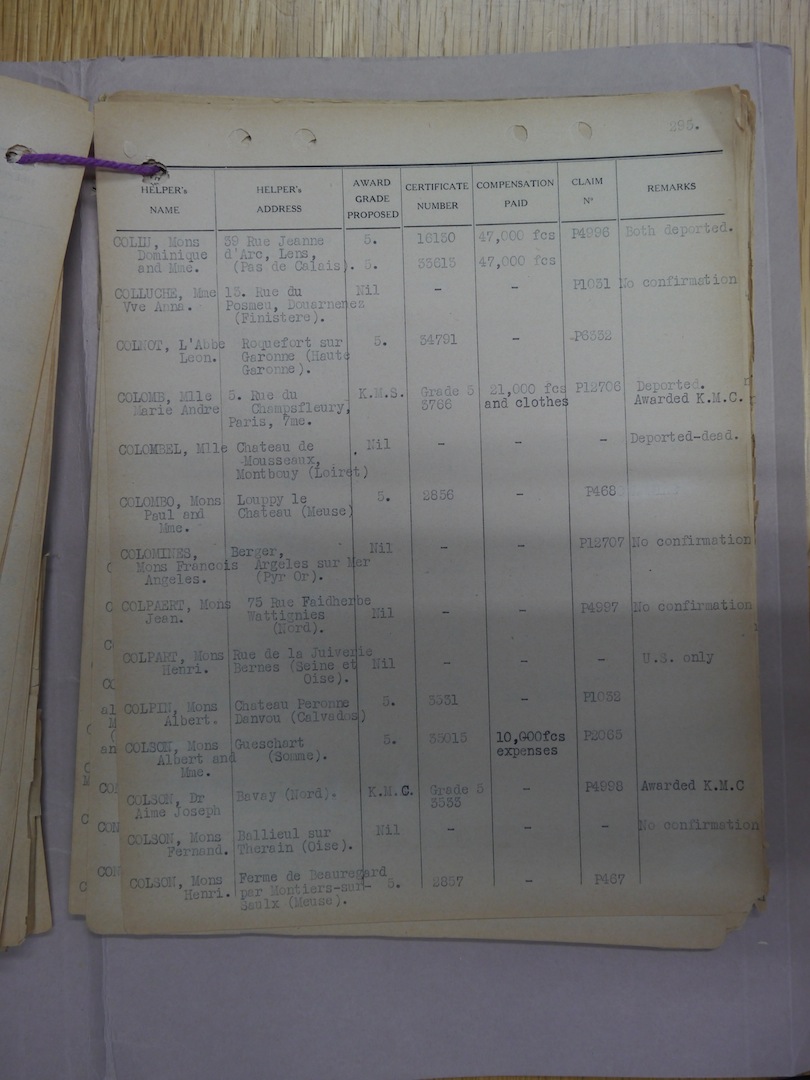 295.
HELPER's NAME | HELPER's ADDRESS | AWARD GRADE PROPOSED | CERTIFICATE NUMBER | COMPENSATION PAID | CLAIM Nº | REMARKS
COLIN, Mons 39 Rue Jeanne 5. 16130 47,000 fcs P4996 Both deported.
Dominique d'Arc, Lens,
and Mme. (Pas de Calais). 5. 33613 47,000 fcs
COLLUCHE, Mme 13. Rue du Nil - - P1031 No confirmation
Vve Anna. Posmeu, Douarnenez
(Finistere).
COLNOT, L'Abbe Roquefort sur 5. 34791 - P6332
Leon. Garonne (Haute
Garonne).
COLOMB, Mlle 5. Rue du K.M.S. Grade 5 21,000 fcs P12706 Deported.
Marie Andre Champsfleury, 3766 and clothes Awarded K.M.C.
Paris, 7me.
COLOMBEL, Mlle Chateau de Nil - - - Deported-dead.
Mousseaux,
Montbouy (Loiret)
COLOMBO, Mons Louppy le 5. 2856 - P468
Paul and Chateau (Meuse)
Mme.
COLOMINES, Berger, Nil - - P12707 No confirmation
Mons Francois Argeles sur Mer
Angeles. (Pyr Or).
COLPAERT, Mons 75 Rue Faidherbe Nil - - P4997 No confirmation
Jean. Wattignies
(Nord).
COLPART, Mons Rue de la Juiverie Nil - - - U.S. only
Henri. Bernes (Seine et
Oise).
COLPIN, Mons Chateau Peronne 5. 3531 - P1032
Albert. Danvou (Calvados)
COLSON, Mons Gueschart 5. 33015 10,000fcs P2065
Albert and (Somme). expenses
Mme.
COLSON, Dr Bavay (Nord). K.M.C. Grade 5 - P4998 Awarded K.M.C
Aime Joseph 3533
COLSON, Mons Ballieul sur Nil - - - No confirmation
Fernand. Therain (Oise).
COLSON, Mons Ferme de Beauregard 5. 2857 - P467
Henri. par Montiers-sur-
Saulx (Meuse).